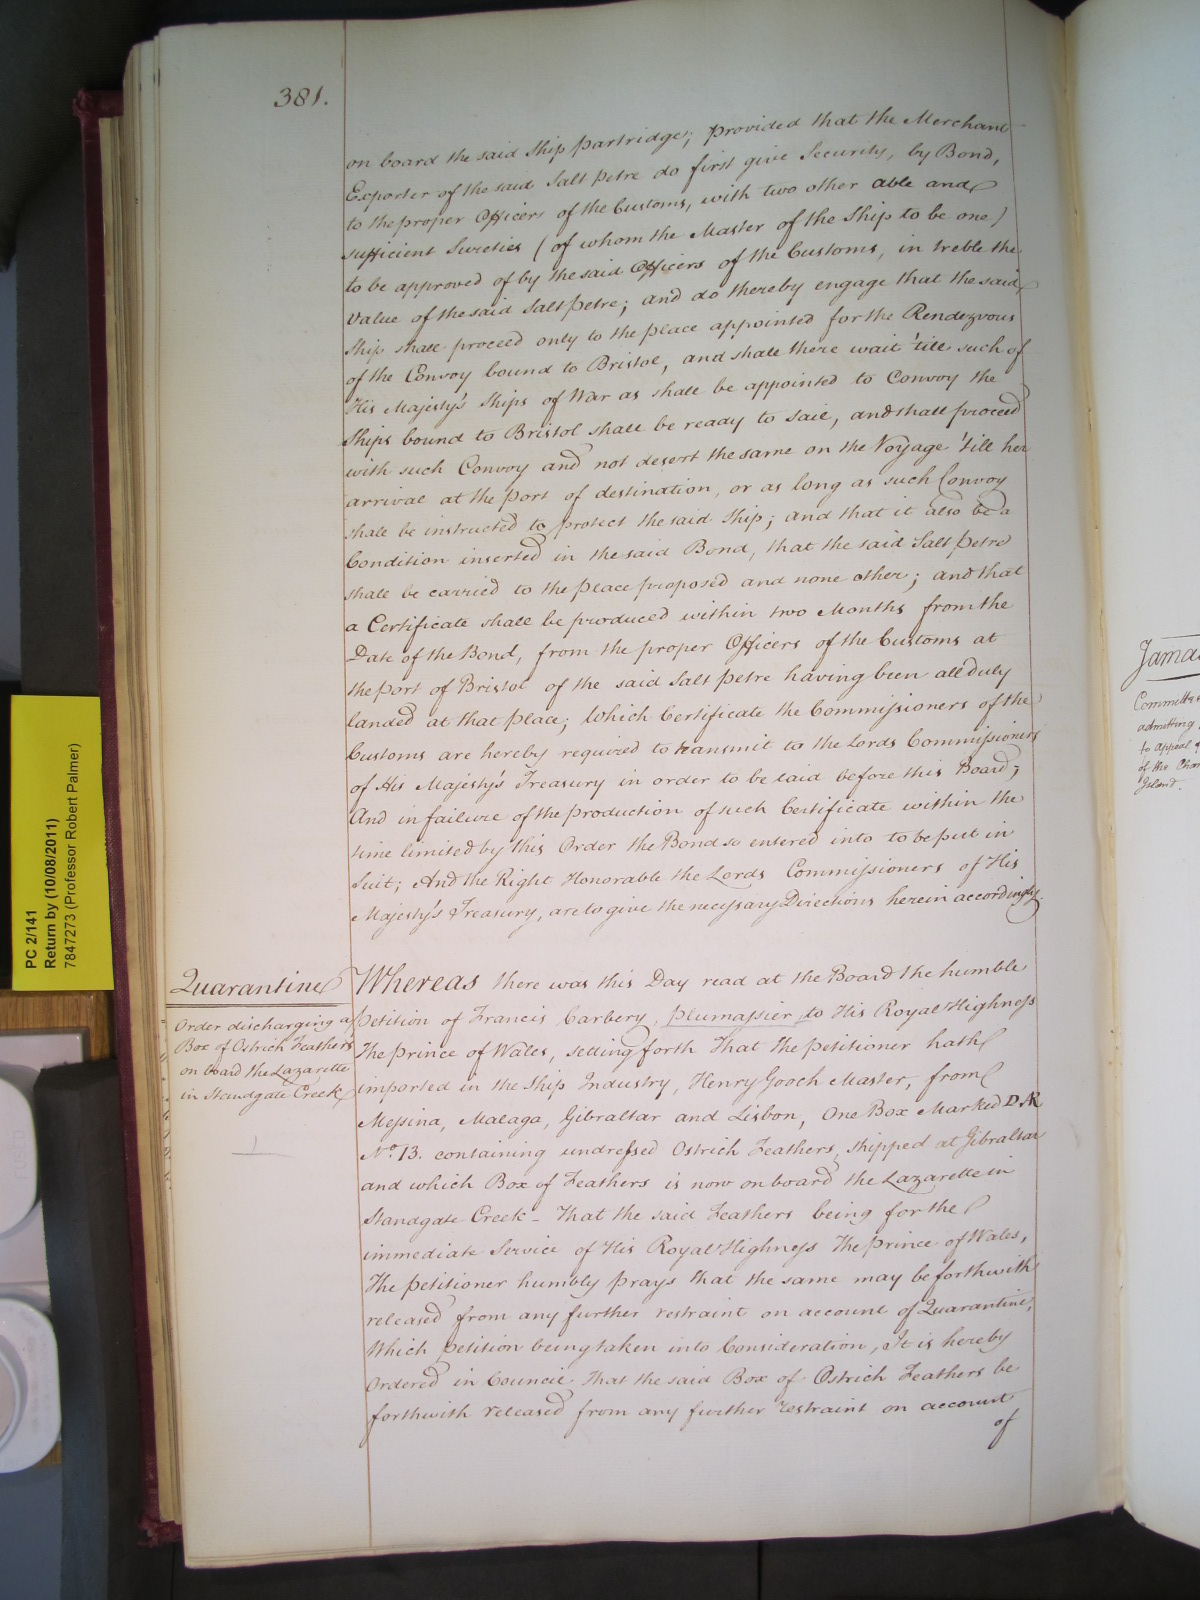 381.
on board the said Ship Partridge; provided that the Merchant
Exporter of the said Salt Petre do first give Security, by Bond,
to the proper Officers of the Customs, with two other able and
sufficient Sureties (of whom the Master of the Ship to be one)
to be approved of by the said Officers of the Customs, in treble the
Value of the said Salt Petre; and do thereby engage that the said
Ship shall proceed only to the place appointed for the Rendezvous
of the Convoy bound to Bristol, and shall there wait 'till such of
His Majesty's Ships of War as shall be appointed to Convoy the
Ships bound to Bristol shall be ready to sail, and shall proceed
with such Convoy and not desert the same on the Voyage 'till her
arrival at the port of destination, or as long as such Convoy
shall be instructed to protect the said Ship; and that it also be a
Condition inserted in the said Bond, that the said Salt petre
shall be carried to the place proposed and none other; and that
a Certificate shall be produced within two Months from the
Date of the Bond, from the proper Officers of the Customs at
the port of Bristol of the said Salt petre having been all duly
landed at that place; Which Certificate the Commissioners of the
Customs are hereby required to transmit to the Lords Commissioners
of His Majesty's Treasury in order to be laid before this Board;
And in failure of the production of such Certificate within the
time limited by this Order the Bond so entered into to be put in
Suit; And the Right Honorable the Lords Commissioners of His
Majesty's Treasury, are to give the necessary Directions herein accordingly.
Quarantine
Order discharging a
Box of Ostrich Feathers
on board the Lazarette
in Standgate Creek
Whereas there was this Day read at the Board the humble
Petition of Francis Carbery, plumassier to His Royal Highness
The Prince of Wales, setting forth That the Petitioner hath
imported in the Ship Industry, Henry Gooch Master, from
Messina, Malaga, Gibraltar and Lisbon, One Box Marked D.N
No. 13. containing undressed Ostrich Feathers, shipped at Gibraltar
and which Box of Feathers is now on board the Lazarette in
Standgate Creek - That the said Feathers being for the
immediate Service of His Royal Highness The Prince of Wales,
The petitioner humbly prays that the same may be forthwith
released from any further restraint on account of Quarantine;
Which petition being taken into Consideration, It is hereby
Ordered in Council That the said Box of Ostrich Feathers be
forthwith released from any further restraint on account
of
PC 2/141
Return by (10/08/2011)
7847273 (Professor Robert Palmer)
Jama
Committee
admitting
to appeal
of the
Island.